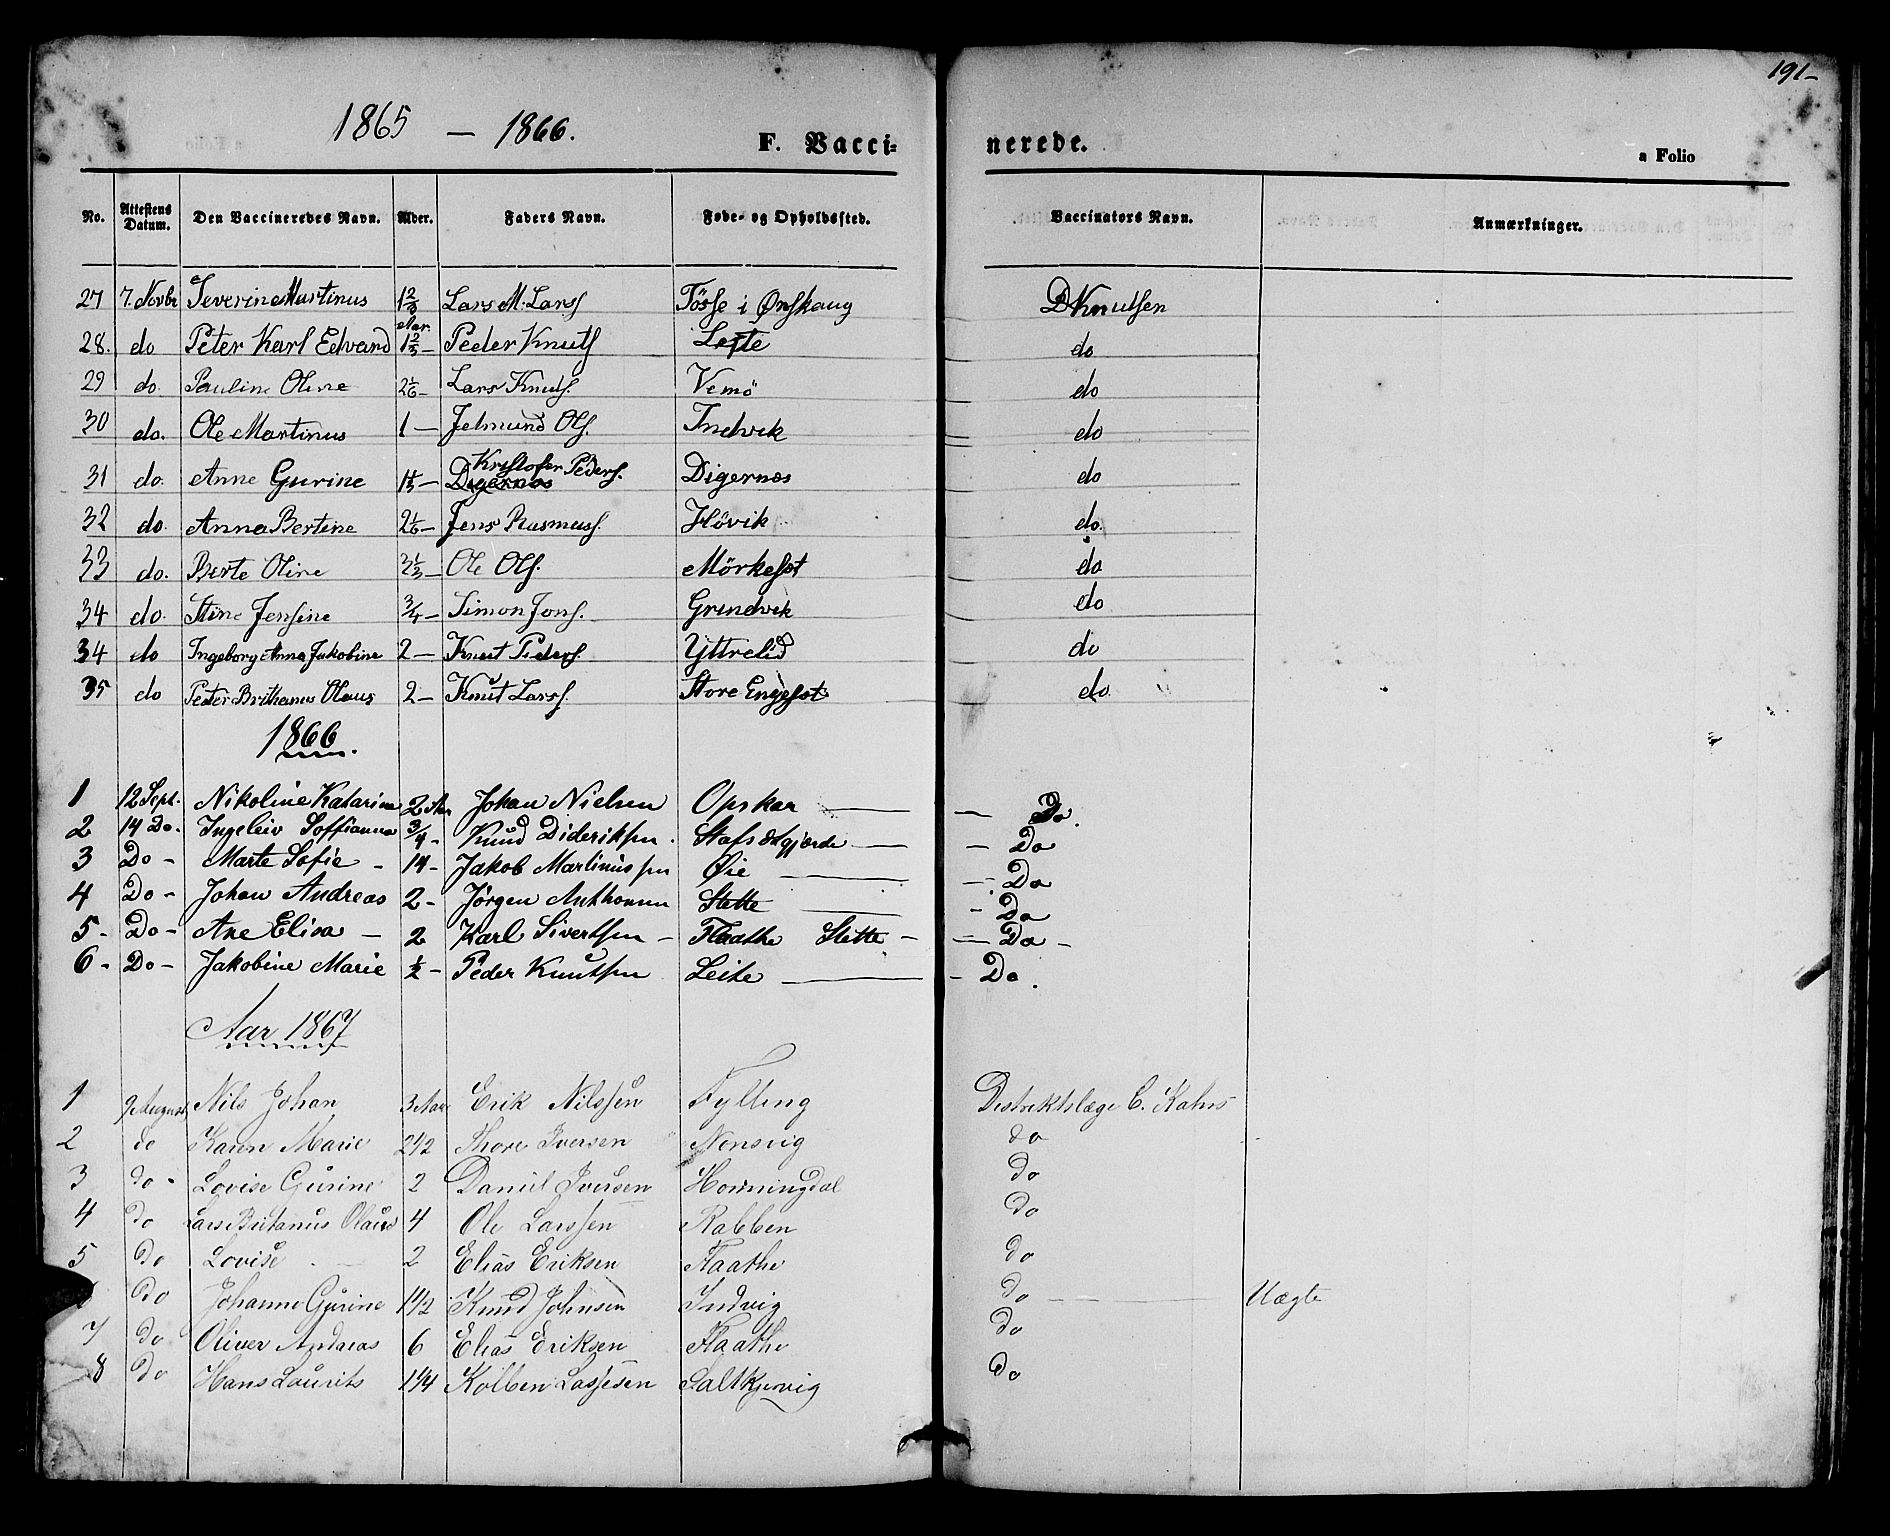 191-
1865 - 1866.
F. Vaccinerede.
a Folio
No. Attestens Datum. Den Vaccineredes Navn. Alder. Faders Navn. Føde- og Opholdssted. Vaccinators Navn. Anmærkninger.
27 7. Novbr Severine Martinus 1 2/3 Aar. Lars M. Larsf Tösse i Ønskaug D Knutsen
28. do Peter Karl Edvard 1 2/3 - Peder Knutf Lefte do
29 do. Pauline Oline 2 1/6 - Lars Knutsf. Vemö do
30 do. Ole Martinus 1 - Jetmund Olf. Indvik do
31 do. Anne Gurine 1 1/3 - Kristofer Pedersf. Digernæs do
32 do. Anna Bertine 2 1/6 - Jens Rasmusf. Hövik do.
33 do. Berte Oline 3 1/3 - Ole Olf. Mörkesæt do
34 do. Stine Jensine 3/4 - Simon Jonsf. Grindvik do
34 do Ingeborg Anna Jakobine 2 - Knut Pedersf. Yttrelid do
35 do Peder Brithanus Olaus 2 - Knut Larsf. Store Engesæt do.
1866.
1 12 Sept. Nikoline Katarina 2 Aar Johan Nielsen Opskar - Do.
2 14 Do. Ingeleiv Soffianna 3/4 - Knud Dideriksen. Stafsætgjærde - Do
3 Do - Marte Sofie - 14 - Jakob Martinussen Øie - Do
4 Do - Johan Andreas 2 - Jørgen Anthonsen Stette - Do
5 - Do - Ane Elisa - 2 Karl Sivertsen - Flaathe Stette - Do -
6 - Do - Jakobine Marie 1/2 - Peder Knutsen Leite - Do.
Aar 1867
1 9 August Nils Johan 3 Aar Erik Nilssen Fylling Distriktslæge C. Kahrs
2 do Karen Marie 2 1/2 Thore Iversen Nonsvig do
3 do - Lovise Gurine 2 Daniel Iversen Honningdal do
4 do Lars Britanus Olaus 4 Ole Larssen Rabben do
5 do Lovise 2 Elias Eriksen Flaathe do
do Johanne Gurine 1 1/2 Knud Johnsen Indvig do Uægte
7 do Oliver Andreas 6 Elias Eriksen Flaathe do
8 do Hans Laurits 1 1/4 Kolben Lassesen Saltkjervig do